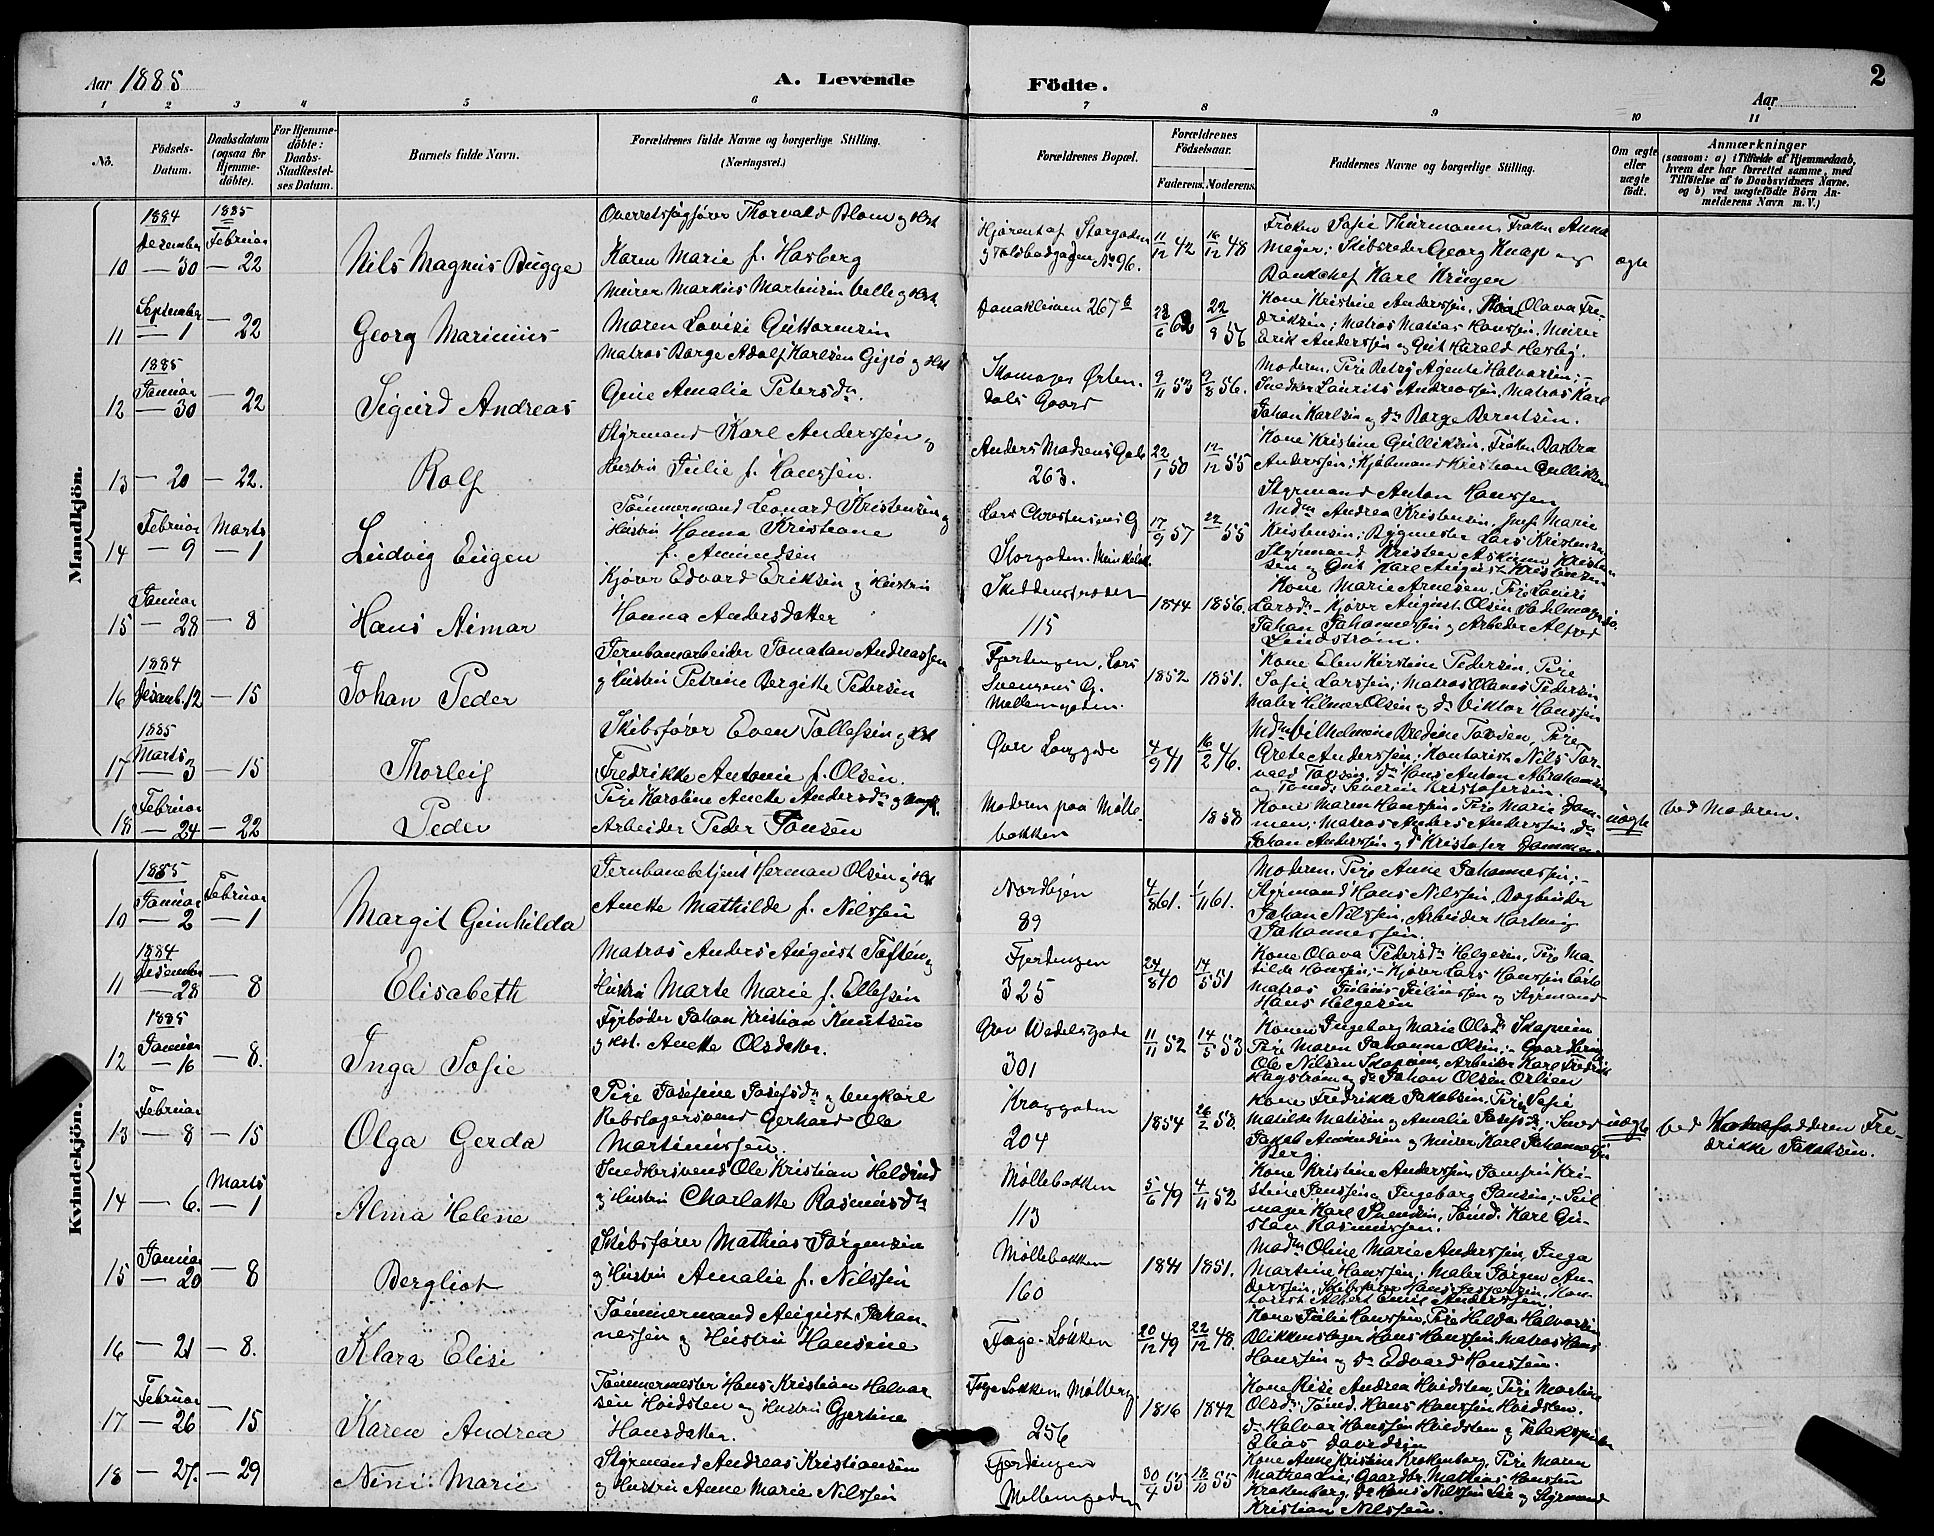 Aar 1885
A. Levende Födte.
2
Aar
1 2 3 4 5 6 7 8 9 10 11
No.
Födsels-Datum.
Daabsdatum (ogsaa for Hjemme-döbte).
For Hjemme-döbte: Daabs-Stadfæstel-ses Datum.
Barnets fulde Navn.
Forældrenes fulde Navne og borgerlige Stilling. (Næringsvei.)
Forældrenes Bopæl.
Forældrenes Födselsaar.
Faderens. Moderens.
Faddernes Navne og borgerlige Stilling.
Om ægte eller uægte födt.
Anmærkninger
(saasom: a) i Tilfælde af Hjemmedaab, hvem der har forrettet samme, med Tilföielse af to Daabsvidners Navne, og b) ved uægtefödte Börn An-melderens Navn m. V.)
Mandkjön.
1884 1885
Dezember Februar
10 — 30 — 22 Nils Magnus Bugge
Overretssagfører Thorvald Blom og Hst
Karen Marie f. Hasberg
Hjørnet af Storgaden
og Toldbodgaden No 96.
11/12 42 16/12 48
Frøken Sofie Thurmann, Frøken Anna
Meyer; Skibsreder Georg Knap og
Bankchef Karl Krüger
ægte
September
11 — 1 — 22 Georg Marinius
Murer Markus Martinsen Velle og Hst.
Maren Lovise Guttormsen
Danakleven 267 b
22/8 56
Kone Kristine Anderssen, Olava Fre-
driksen; Matros Matias Hanssen, Murer
Erik Anderssen og Grit Harald Hesby.
1885
Januar
12 — 30 — 22 Sigurd Andreas
Matros Borge Adolf Karlsen Gipø og Hst
Gine Amalie Petersdr.
Skomager Ørten-
dals Gaard
9/11 53 9/8 56.
Moderen, Pige Betsy Agente Halvorsen; –
Snedker Laurits Andreassen, Matros Karl
Johan Karlsen og do Borge Berntsen.
13 — 20 — 22. Rolf
Styrmand Karl Anderssen og
Hustru Julie f. Hanssen.
Anders Madsens Gade
263.
22/1 50 12/12 55
Kone Kristine Gulliksen, Frøken Barbra
Anderssen; Kjøbmand Kristian Gulliksen
Styrmand Anton Hanssen
Februar Marts
14 — 9 — 1 Ludvig Eugen
Tømmermand Leonard Kristensen og
Hustru Hanna Kristiane
f. Amundsen
Lars Christensens G.
Storgaden
17/9 57
Mdm Andrea Kristensen, Jmf. Marie
Kristensen; Bygmester Lars Kristensen
Styrmand Kristen Askium Kristen-
sen og Grit Karl August Kristensen
Januar
15 — 28 — 8 Hans Aimar
Kjører Edvard Eriksen og Hustru
Hanna Andersdatter
115
1844 1856.
Kone Marie Arnesen, Pige Lovise
Larsdr – Kjører August Olsen, Sadelmager
Johan Johannessen og Arbeider Alfred
Lindstrøm.
1884
16 Desemb. 12 — 15 Johan Peder
Jernbanearbeider Jonatan Andreassen
og Hustru Petrine Bergitte Pedersen
Fjerdingen, Lars
Svensens G.
Mellemgaden.
1852 1851.
Kone Elen Kirstine Pedersen, Pige
Sofie Larssen; Matros Olaves Pedersen
Maler Hilmer Olsen og do Viktor Hanssen
1885
Marts
17 — 3 — 15 Thorleif
Skibsfører Even Tollefsen og Hst
Fredrikke Antonie f. Olsen.
Øvre Langgade
4/9 41 16/2 46.
Mdm Vilhelmine Bredine Tovsen, Pige
Grete Anderssen; Kontorist Nils Tor-
vald Tovsen, do Hans Anton Abrahamsen
og Tømd. Severin Kristofersen
Februar
18 — 24 — 22 Peder
Pige Karoline Anette Andersdr og Ungk.
Arbeider Peder Jonsen
Moderen paa Mølle-
bakken
1858
Kone Maren Hanssen, Pige Marie Jam-
men; Matros Anders Anderssen, do
Johan Anderssen og do Kristofer Jammen
uægte
ved Moderen.
Kvindekjön.
1885
Januar Februar
10 — 2 — 1 Margit Gunhilda
Jernbanebetjent Herman Olsen og Hst
Anette Mathilde f. Nilssen
Nordbyen
89
4/8 61. 1/11 61.
Moderen, Pige Anne Johannessen; –
Styrmand Hans Nilssen, Bogbinder
Johan Nilssen, Arbeider Hartvig
Johannessen.
1884
Desember
11 — 28 — 8 Elisabeth
Matros Anders August Toften og
Hustru Marte Marie f. Ellefsen
Fjerdingen
325
24/8 40 14/5 51
Kone Olava Pedersdr Helgesen, Pige Ma-
tilde Hanssen; – Kjører Lars Hanssen
Matros Julius Juliussen og Styrmand
Hans Helgesen
1885
Januar
12 — 16 — 8. Inga Sofie
Fyrbøder Johan Kristian Knutsen
og Hst. Anette Olsdatter.
Grev Wedelsgade
301
11/11 52 14/5 53
Konen Ingeborg Marie Olsdr Skapium
Pige Maren Johanne Olsen; –
Ole Nilsen Skapium, Arbeider Karl Fredrik
Hagstrøm og do Johan Olsen
Februar
13 — 8 — 15 Olga Gerda
Pige Josefine Josefsdr og Ungkarl
Rebslagersvend Gerhard Ole
Martiniussen.
Kroggaden
204
1854 26/2 50.
Kone Fredrikke Jakobsen, Pige Sofie
Matilde Matisen og Amalie Josefsdr; Smed
Jakob Amundsen og Murer Karl Johannessen
Berg.
uægte
ved Fadderen Fre-
drikke Jakobsen.
Marts
14 — 6. — 1 Alma Helene
Snedkersvend Ole Kristian Heldrud
og Hustru Charlotte Rasmusdr
Møllebakken
113
5/6 49 4/11 52
Kone Kristine Anderssen, Jomfru Kri-
stine Jenssen og Ingeborg Jansen; – Seil-
mager Karl Svendsen, Tømd. Karl Gu-
stav Rasmussen.
Januar
15 — 20 — 8 Bergliot
Skibsfører Mathias Jørgensen
og Hustru Amalie f. Nilssen
Møllebakken
160
1841 1851.
Madm Oline Marie Anderssen, Inga
Martine Hanssen; Maler Jørgen An-
derssen, Skibsfører Hans Jespersen, Kon-
torist Albert Emil Anderssen.
16 — 21 — 8. Klara Elise
Tømmermand August Johan-
nessen og Hustru Hansine
Fage-Løkken
20/12 49 22/12 48.
Kone Julie Hanssen, Pige Hilda Halvorsen
Blikkenslager Hans Hanssen, Matros Hans
Hanssen og do Edvard Hanssen.
Februar
17 — 26 — 15 Karen Andrea
Tømmermester Hans Kristian Halvor
sen Hvidsten og Hustru Gjertine
Hansdatter.
256
1816 1842
Kone Rise Andrea Hvidsten, Pige Martine
Olsdr Tømd. Hans Hanssen Hvidsten,
do Halvor Hanssen Hvidsten og
Elias Davidsen
18 — 27. — 29 Nini Marie
Styrmand Andreas Kristiansen
og Hustru Anne Marie Nilssen
Fjerdingen
Mellemgaden
30/4 55 18/10 55
Kone Anne Kristine Krakenborg, Pige Maren
Mathea Lie; Gaardbr. Mathias Hanssen
Krakenborg, do Hans Nilssen Lie og Styrmand
Kristian Nilssen.